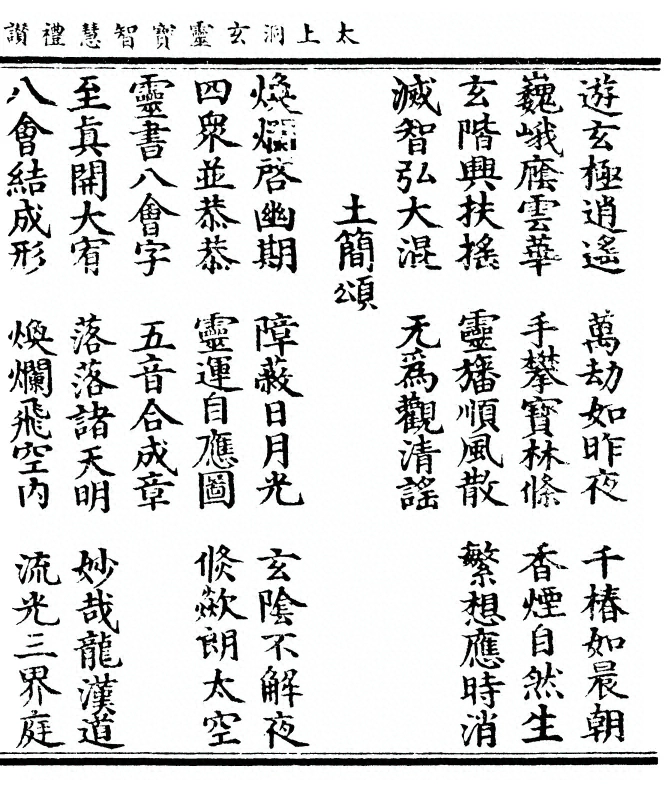 太上洞玄靈寶智慧禮讃
遊玄極逍遙　萬劫如昨夜　千椿如晨朝
巍峨廕雲華　手攀寶林條　香煙自然生
玄階興扶搖　靈旛順風散　繁想應時消
滅智弘大混　无爲觀清謡
土簡頌
煥爛啓幽期　障蔽日月光　玄陰不解夜
四衆並恭恭　靈運自應圖　倐歘朗太空
靈書八會字　五音合成章
至真開大宥　落落諸天明　妙哉龍漢道
八會結成形　煥爛飛空内　流光三界庭